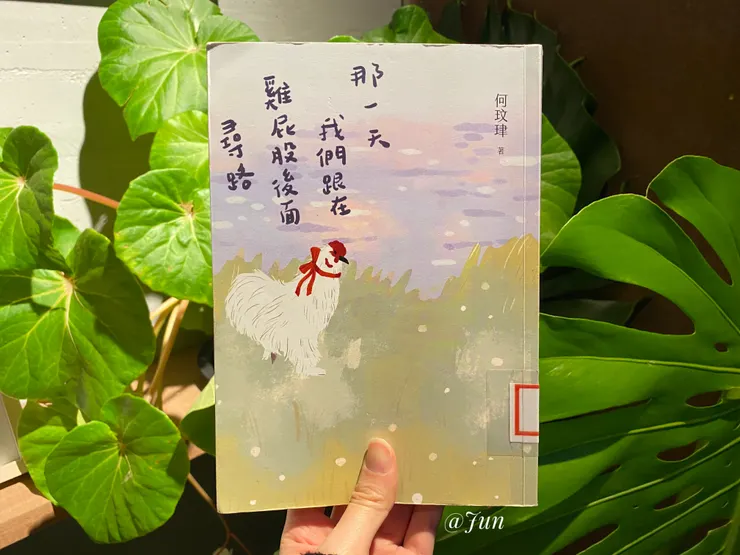 那一天
我們跟在
雞屁股後面
尋路
何玟珒 著
@Jun